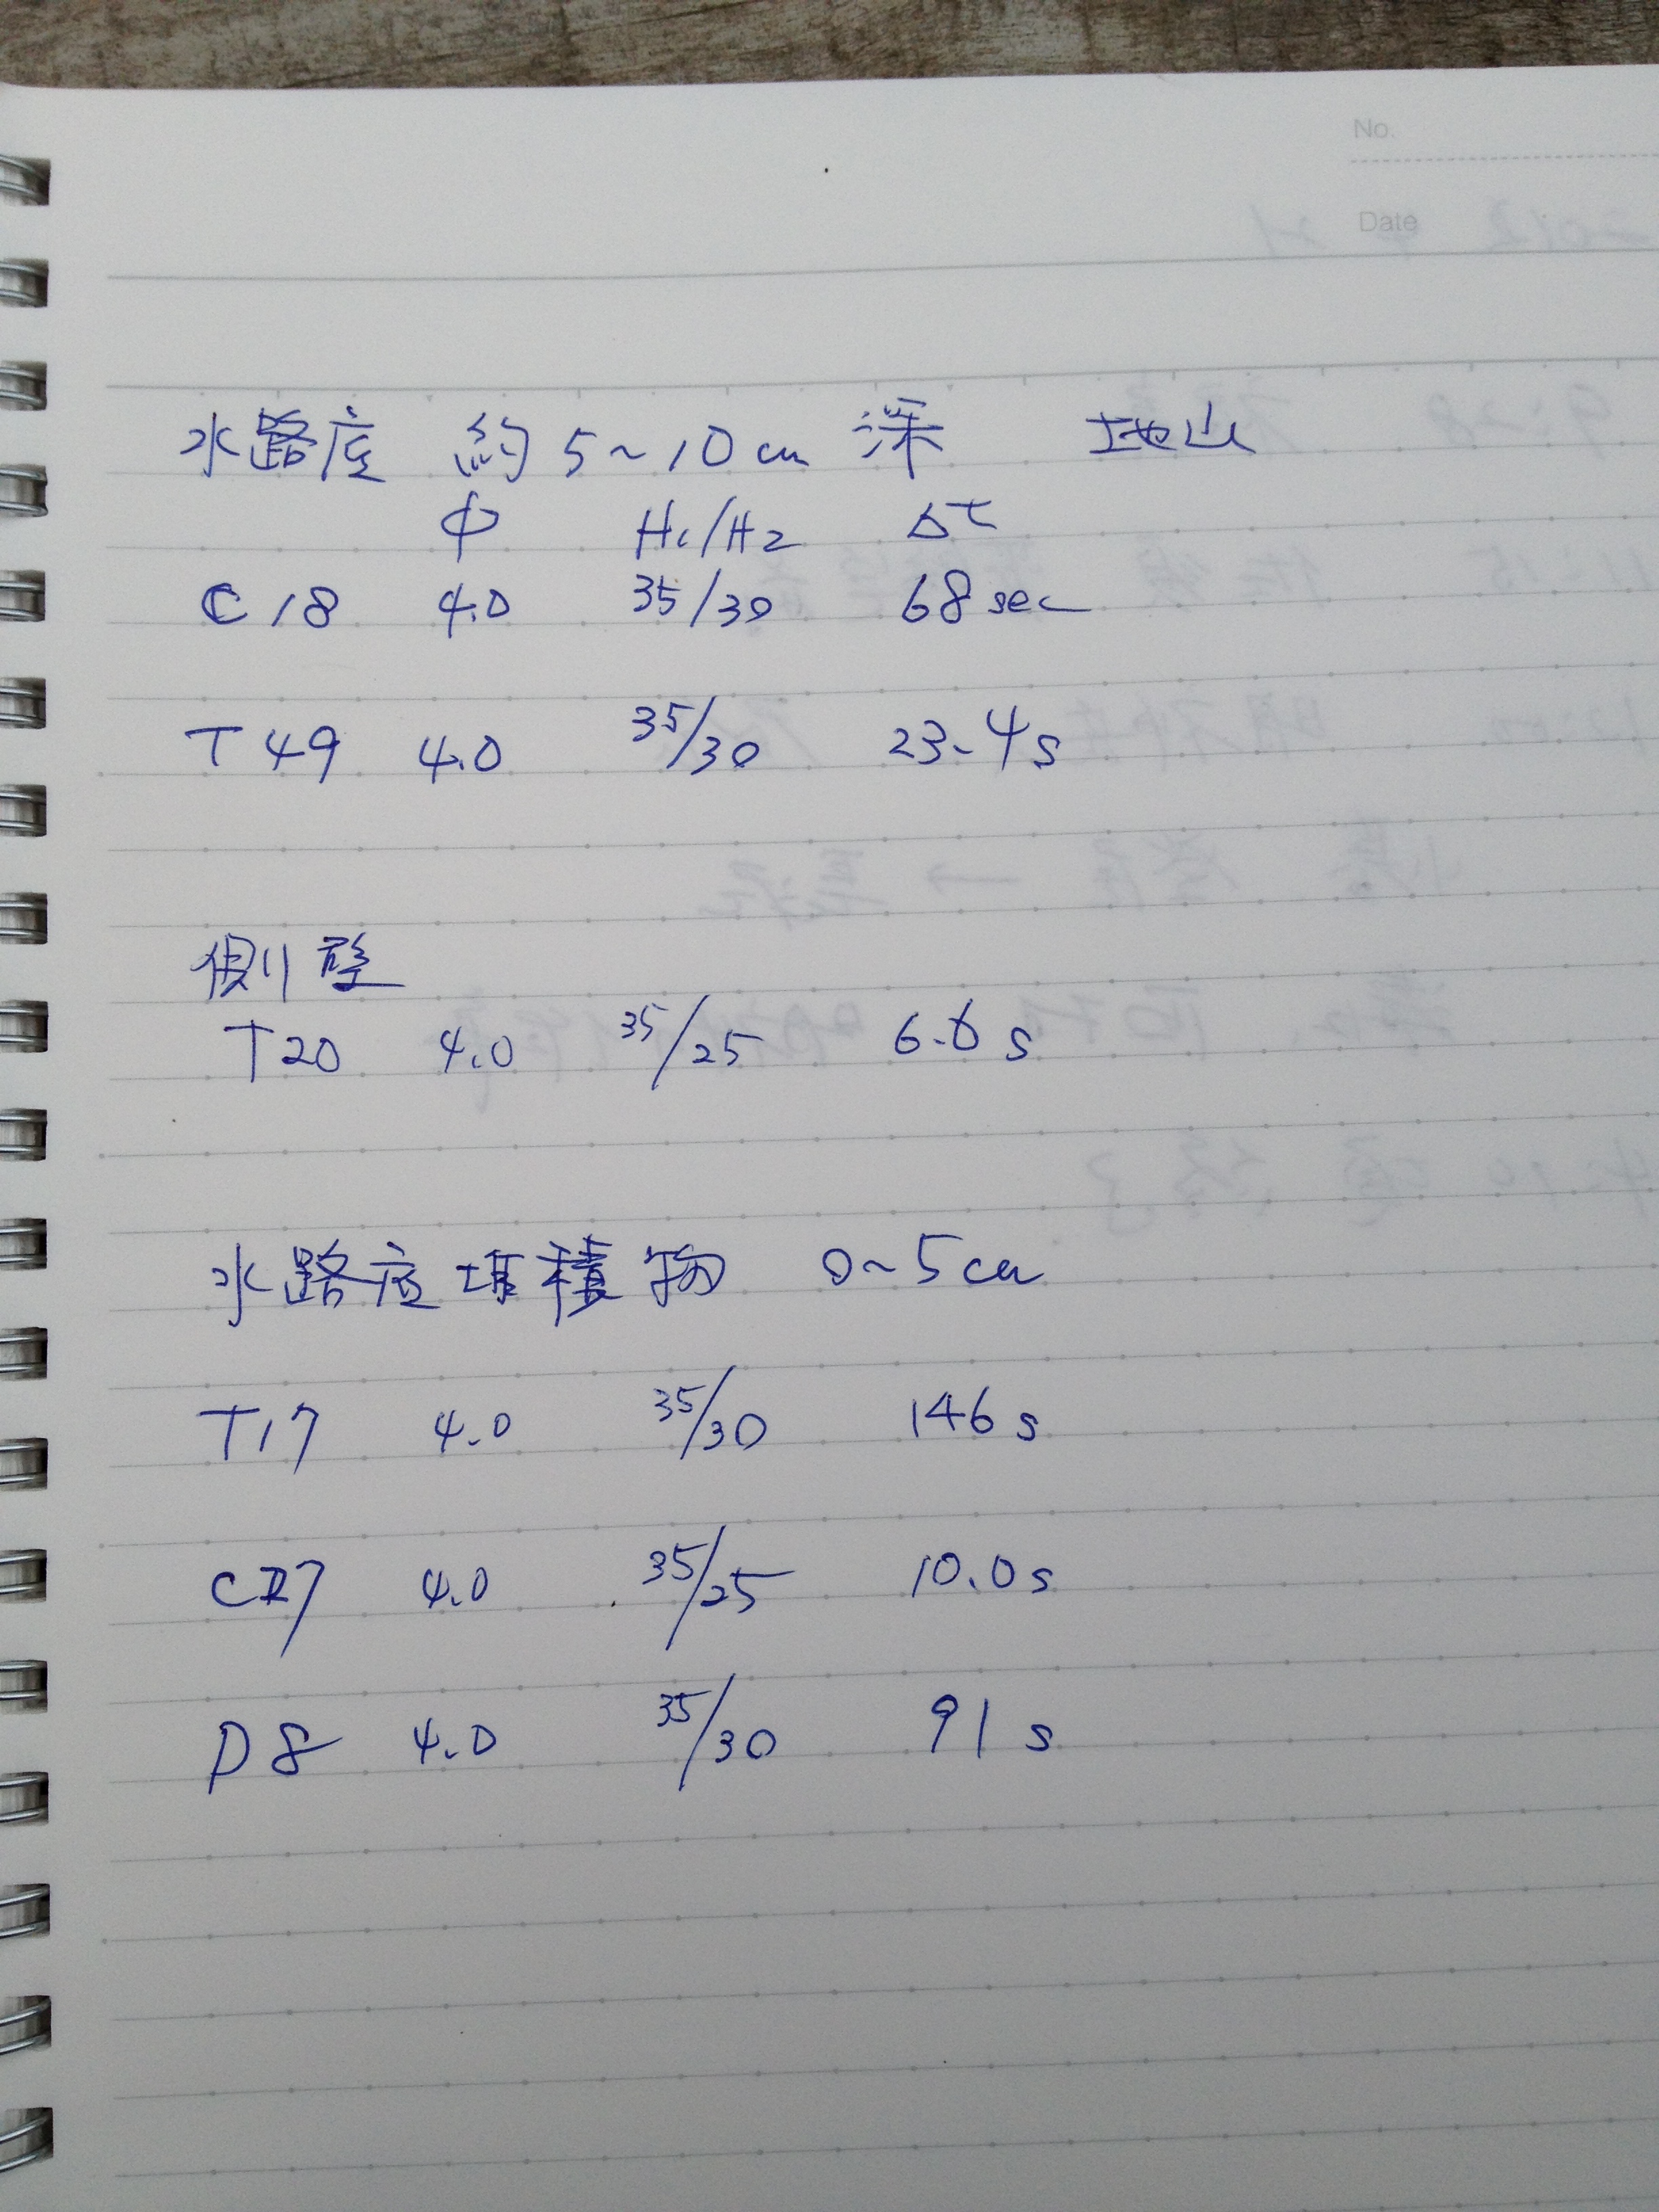 No.
Date
水路底 約5~10cm深 地山
φ H1/H2 Δt
C18 4.0 35/30 68sec
T49 4.0 35/30 23.4s
側壁
T20 4.0 35/25 6.6s
水路底堆積物 0~5cm
T17 4.0 35/30 146s
4.0 35/25 10.0s
D8 4.0 35/30 91s